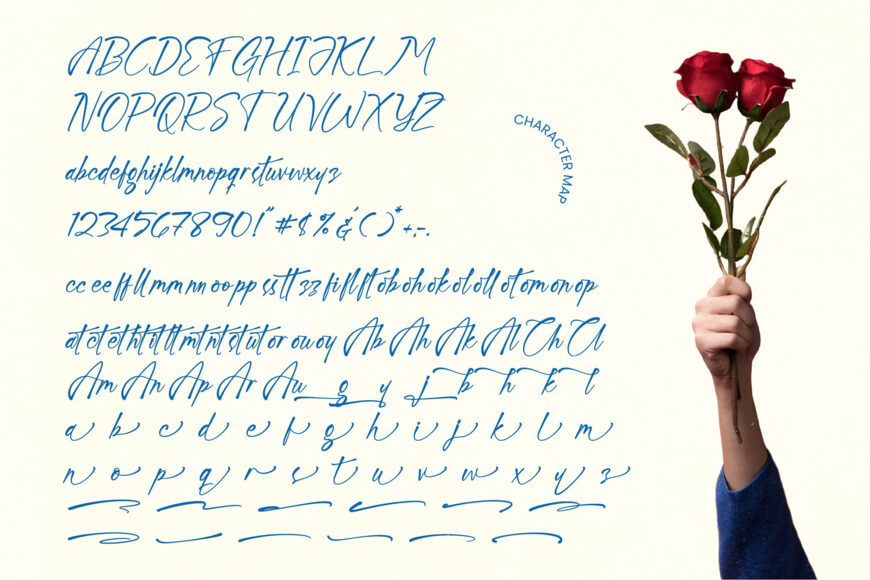 ABCDEFGHIJKLM
NOPQRSTUVWXYZ
abcdefghijklmnopqrstuvwxyz
1234567890!"#$%&'()*+,-.
CHARACTER MAP
cc ee ff ll mm nn oo pp ss tt zz fi fl ft ob oh ok ol oll ot om on op
at ct et ht it lt mt nt st ut or ow oy Ab Ah Ak Al Ch Cl
Am An Ap Ar Au g y j b h k l
a b c d e f g h i j k l m
n o p q r s t u v w x y z